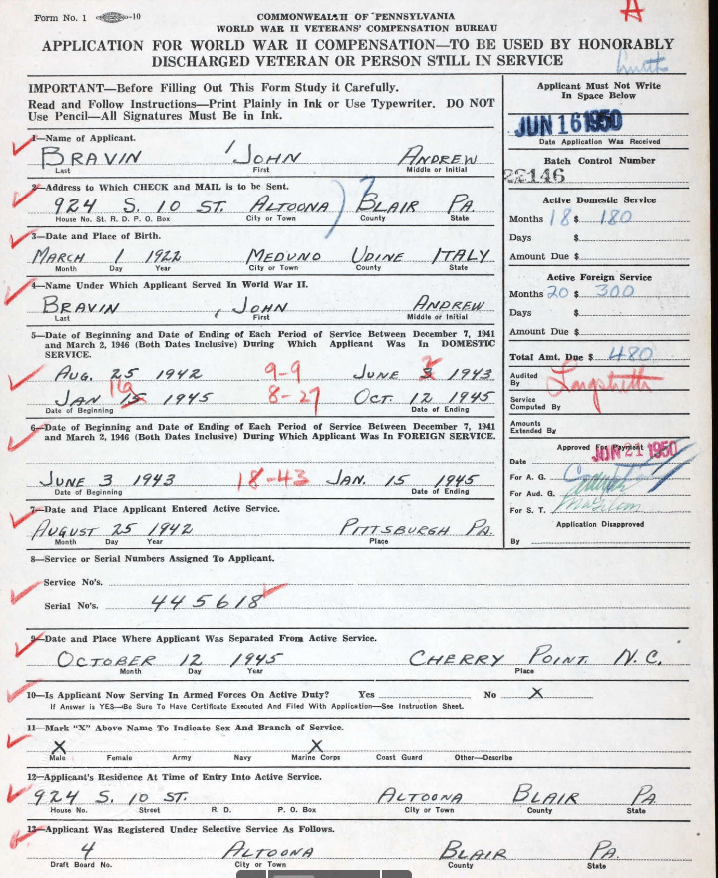 Form No. 1 -10
COMMONWEALTH OF PENNSYLVANIA
WORLD WAR II VETERANS' COMPENSATION BUREAU
APPLICATION FOR WORLD WAR II COMPENSATION—TO BE USED BY HONORABLY
DISCHARGED VETERAN OR PERSON STILL IN SERVICE
IMPORTANT—Before Filling Out This Form Study it Carefully.
Read and Follow Instructions—Print Plainly in Ink or Use Typewriter. DO NOT
Use Pencil—All Signatures Must Be in Ink.
Applicant Must Not Write
In Space Below
JUN 16 1950
Date Application Was Received
Batch Control Number
22146
1—Name of Applicant.
BRAVIN JOHN ANDREW
Last First Middle or Initial
2—Address to Which CHECK and MAIL is to be Sent.
924 S. 10 ST. ALTOONA BLAIR PA.
House No. St. R. D. P. O. Box City or Town County State
3—Date and Place of Birth.
MARCH 1 1922 MEDUNO UDINE ITALY
Month Day Year City or Town County State
4—Name Under Which Applicant Served In World War II.
BRAVIN, JOHN ANDREW
Last First Middle or Initial
5—Date of Beginning and Date of Ending of Each Period of Service Between December 7, 1941
and March 2, 1946 (Both Dates Inclusive) During Which Applicant Was In DOMESTIC
SERVICE.
AUG. 25 1942 9-9 JUNE 3 2 1943
JAN 15 16 1945 8-27 OCT. 12 1945
Date of Beginning Date of Ending
6—Date of Beginning and Date of Ending of Each Period of Service Between December 7, 1941
and March 2, 1946 (Both Dates Inclusive) During Which Applicant Was In FOREIGN SERVICE.
JUNE 3 1943 18-43 JAN. 15 1945
Date of Beginning Date of Ending
7—Date and Place Applicant Entered Active Service.
AUGUST 25 1942 PITTSBURGH PA.
Month Day Year Place
Active Domestic Service
Months 18 $ 180
Days $
Amount Due $
Active Foreign Service
Months 20 $ 300
Days $
Amount Due $
Total Amt. Due $ 480
Audited
By
Service
Computed By
Amounts
Extended By
Approved For Payment
Date JUN 21 1950
For A. G.
For Aud. G.
For S. T.
Application Disapproved
By
8—Service or Serial Numbers Assigned To Applicant.
Service No's.
Serial No's. 445618
9—Date and Place Where Applicant Was Separated From Active Service.
OCTOBER 12 1945 CHERRY POINT N.C.
Month Day Year Place
10—Is Applicant Now Serving In Armed Forces On Active Duty? Yes No X
If Answer is YES—Be Sure To Have Certificate Executed And Filed With Application—See Instruction Sheet.
11—Mark "X" Above Name To Indicate Sex and Branch of Service.
X X
Male Female Army Navy Marine Corps Coast Guard Other—Describe
12—Applicant's Residence At Time of Entry Into Active Service.
924 S. 10 ST. ALTOONA BLAIR PA.
House No. Street R. D. P. O. Box City or Town County State
13—Applicant Was Registered Under Selective Service As Follows.
4 ALTOONA BLAIR PA.
Draft Board No. City or Town County State